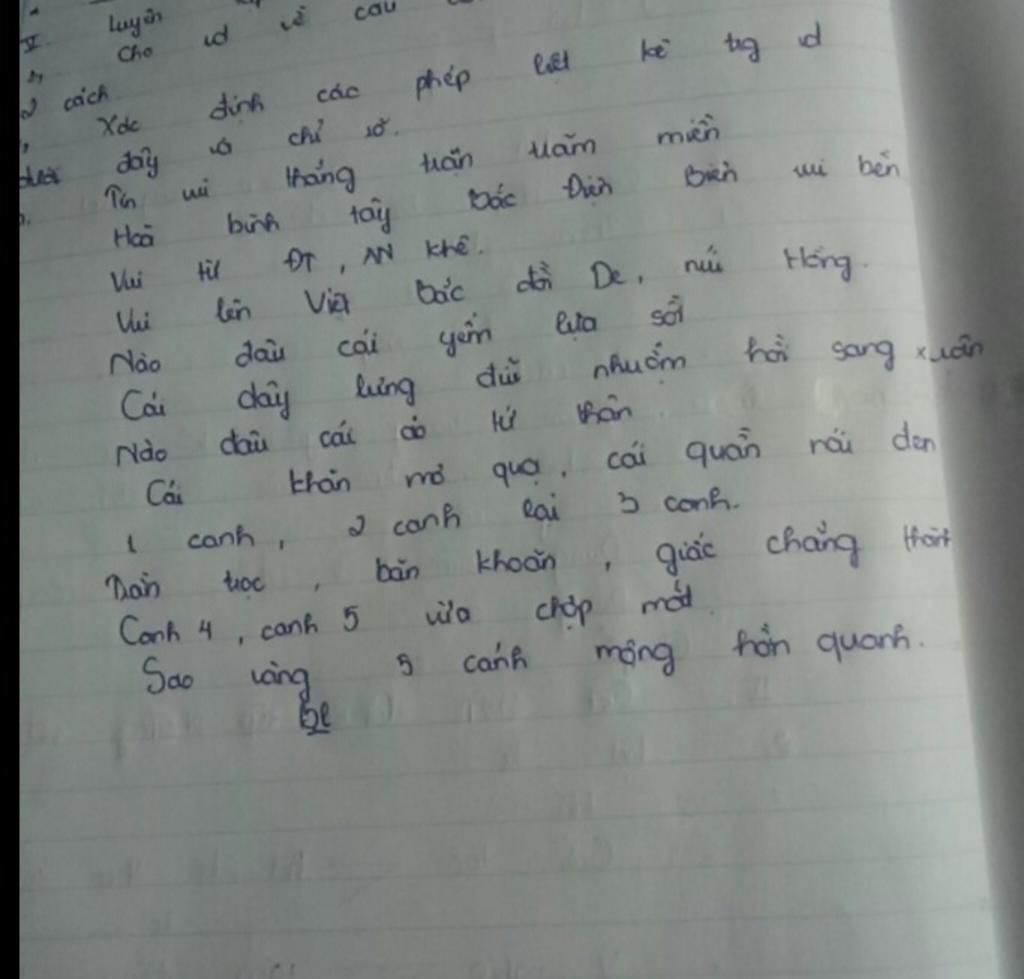 V. luyện
Cho vd về cau
2 cách.
Xđc định các phép liệt kê trg vd
dưới đây và chỉ rõ.
Tin vui thắng trận trăm miền
Hoà bình tây Bắc Điện Biên vui bên
Vui từ ĐT, AN khê.
Vui lên Việt Bắc đồi De, núi Hồng.
Nào đâu cái yếm lụa sồi
Cái dây lưng đũi nhuộm hồi sang xuân
Nào đâu cái áo tứ thân
Cái khăn mỏ quạ, cái quần nái đen
1 canh, 2 canh lại 3 canh.
Trằn trọc, băn khoăn, giấc chẳng thành
Canh 4, canh 5 vừa chợp mắt
Sao vàng 5 cánh mộng hồn quanh.